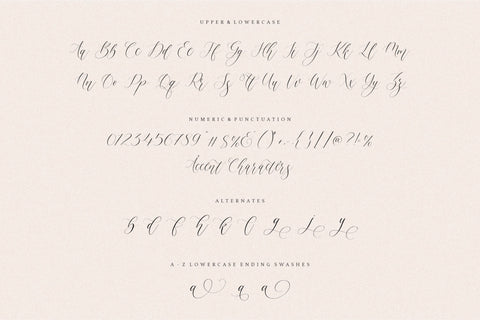 UPPER & LOWERCASE
Aa Bb Cc Dd Ee Ff Gg Hh Ii Jj Kk Ll Mm
Nn Oo Pp Qq Rr Ss Tt Uu Vv Ww Xx Yy Zz
NUMERIC & PUNCTUATION
0123456789 " # $ % & ( ) * , . { } / / @ ? ! . %
Accent Characters
ALTERNATES
b d f h k l g j y
A - Z LOWERCASE ENDING SWASHES
a a a